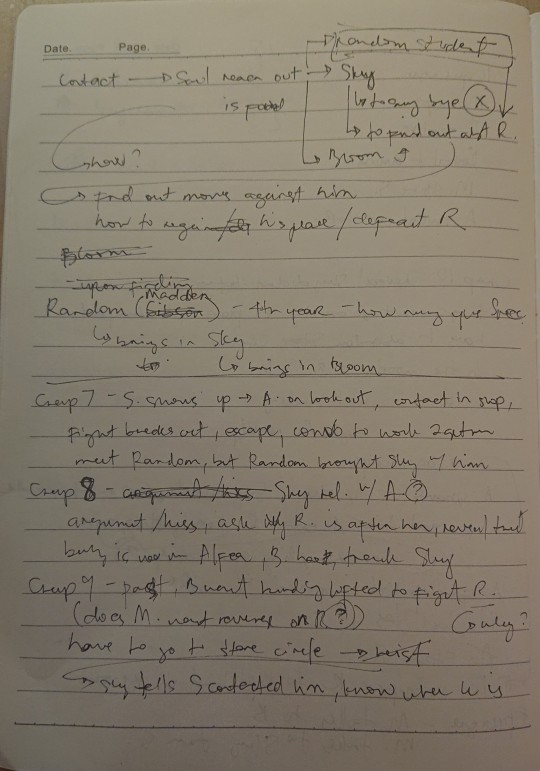 Date. Page.
Random student
Contact → Saul reach out → Sky
is
↳ to say bye (X)
↳ to find out abt R.
↳ Bloom
how?
↳ find out moves against him
how to regain his place / defeat R
Bloom
upon finding
Random (Gibson) Madden – 4th year – how many yrs Spec
↳ brings in Sky
↳ brings in Bloom
Chap 7 – S. shows up → A. on lookout, contact in shop,
Fight breaks out, escape, to work 2getha
meet Random, but Random brought Sky w/ him
Chap 8 – argument/kiss Sky rel. w/ A (?)
argument /kiss, ask why R. is after her, reveal truth
is now in Alfea, B. Sky
Chap 9 – past, B want binding lifted to fight R.
(does M. want revenge on R (?)) ↳ why?
have to go to stone circle → heist
↳ Sky tells S contacted him, know where he is